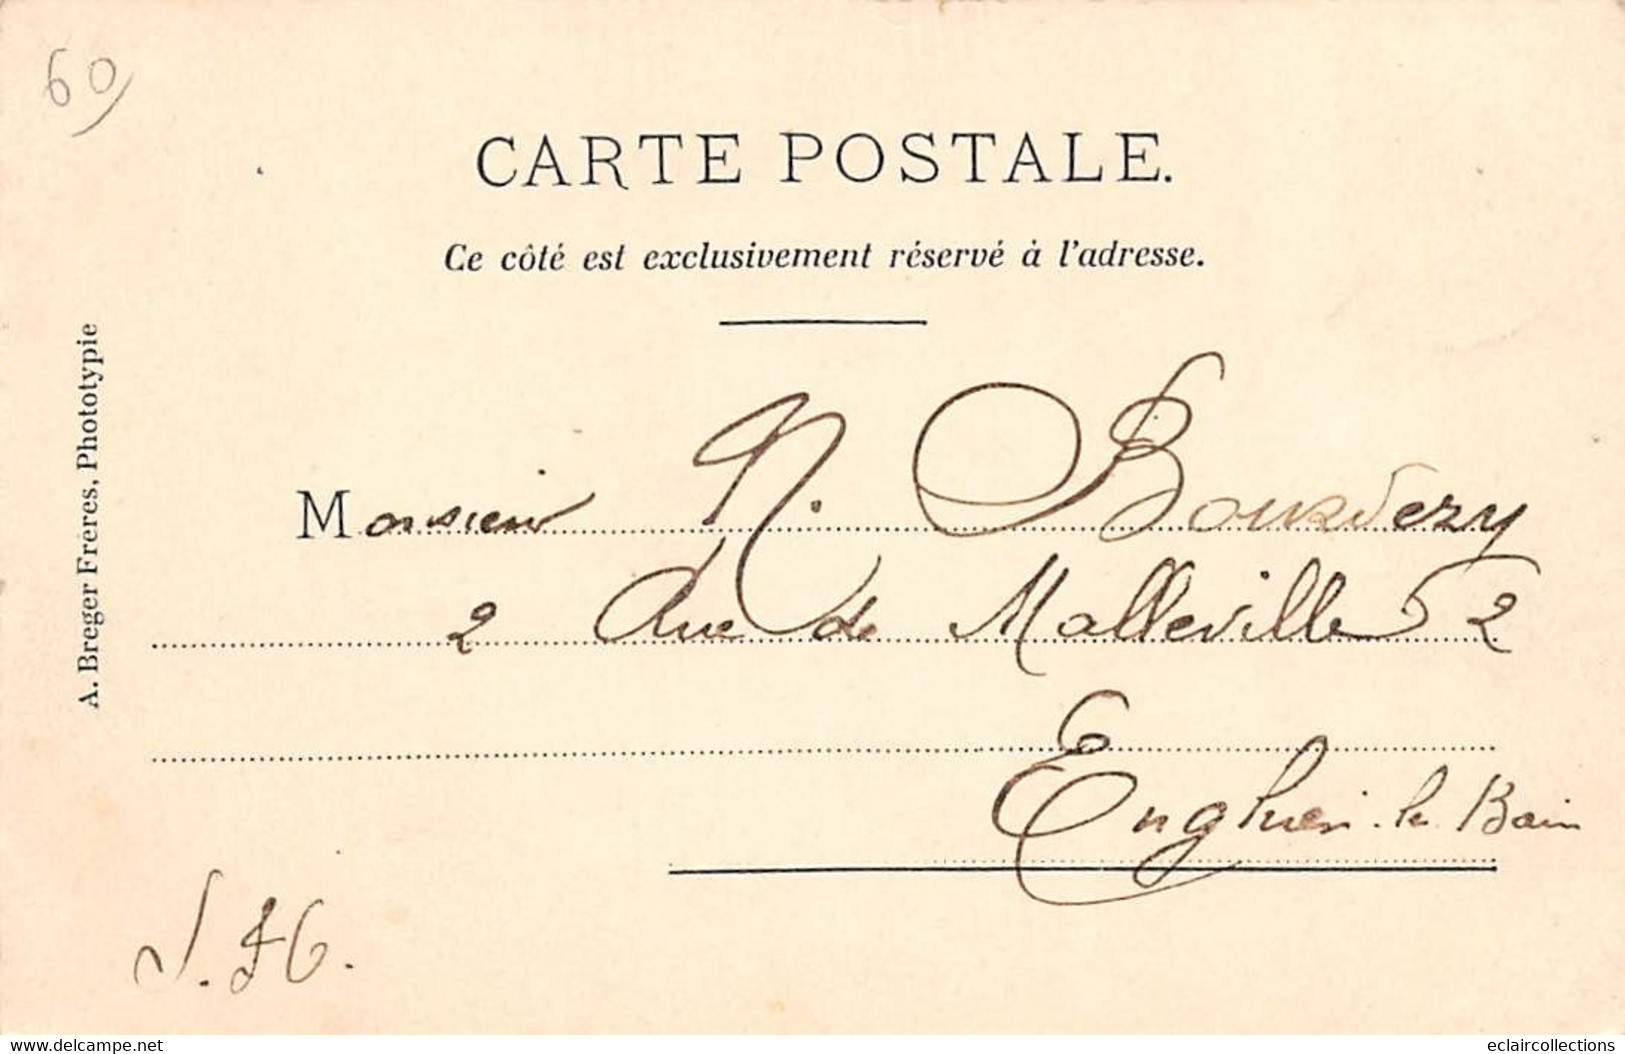 60
CARTE POSTALE.
Ce côté est exclusivement réservé à l'adresse.
A. Breger Frères, Phototypie
Monsieur N. Bourdery
2 Rue de Malleville 2
Enghien-les Bain
delcampe.net
eclaircollections